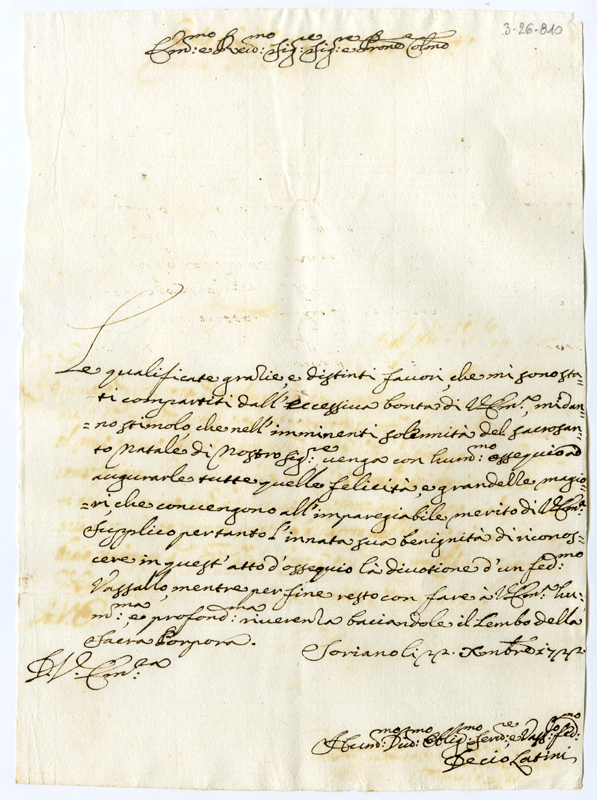 3-26-810
Em:mo e Rev:mo Sig:re Sig:re e Prone Colmo
Le qualificate grazie, e distinti favori che mi sono sta=
ti compartiti dall'eccessiva bontà di V. Em:, mi dan=
=no stimolo che nell'imminenti solennità del sacrosan=
to Natale di Nostro Sig:re venga con hum:mo ossequio ad
augurarle tutte quelle felicità e grandezze magio=
=ri che convengono all'impregiabile merito di V. Em:
Supplico pertanto l'innata sua benignità di riconos=
cere in quest'atto d'ossequio la divotione d'un fed:mo
Vassallo, mentre per fine resto con fare à V. Em:za hu=
m:ma, e profond:ma riverenza baciandole il Lembo della
Sacra Porpora.
Soriano li 22. Xmbre
D. V. Em:za
Hum:mo Div:mo Oblig:mo Serv:re e Vass:lo fed:mo
Decio Latini